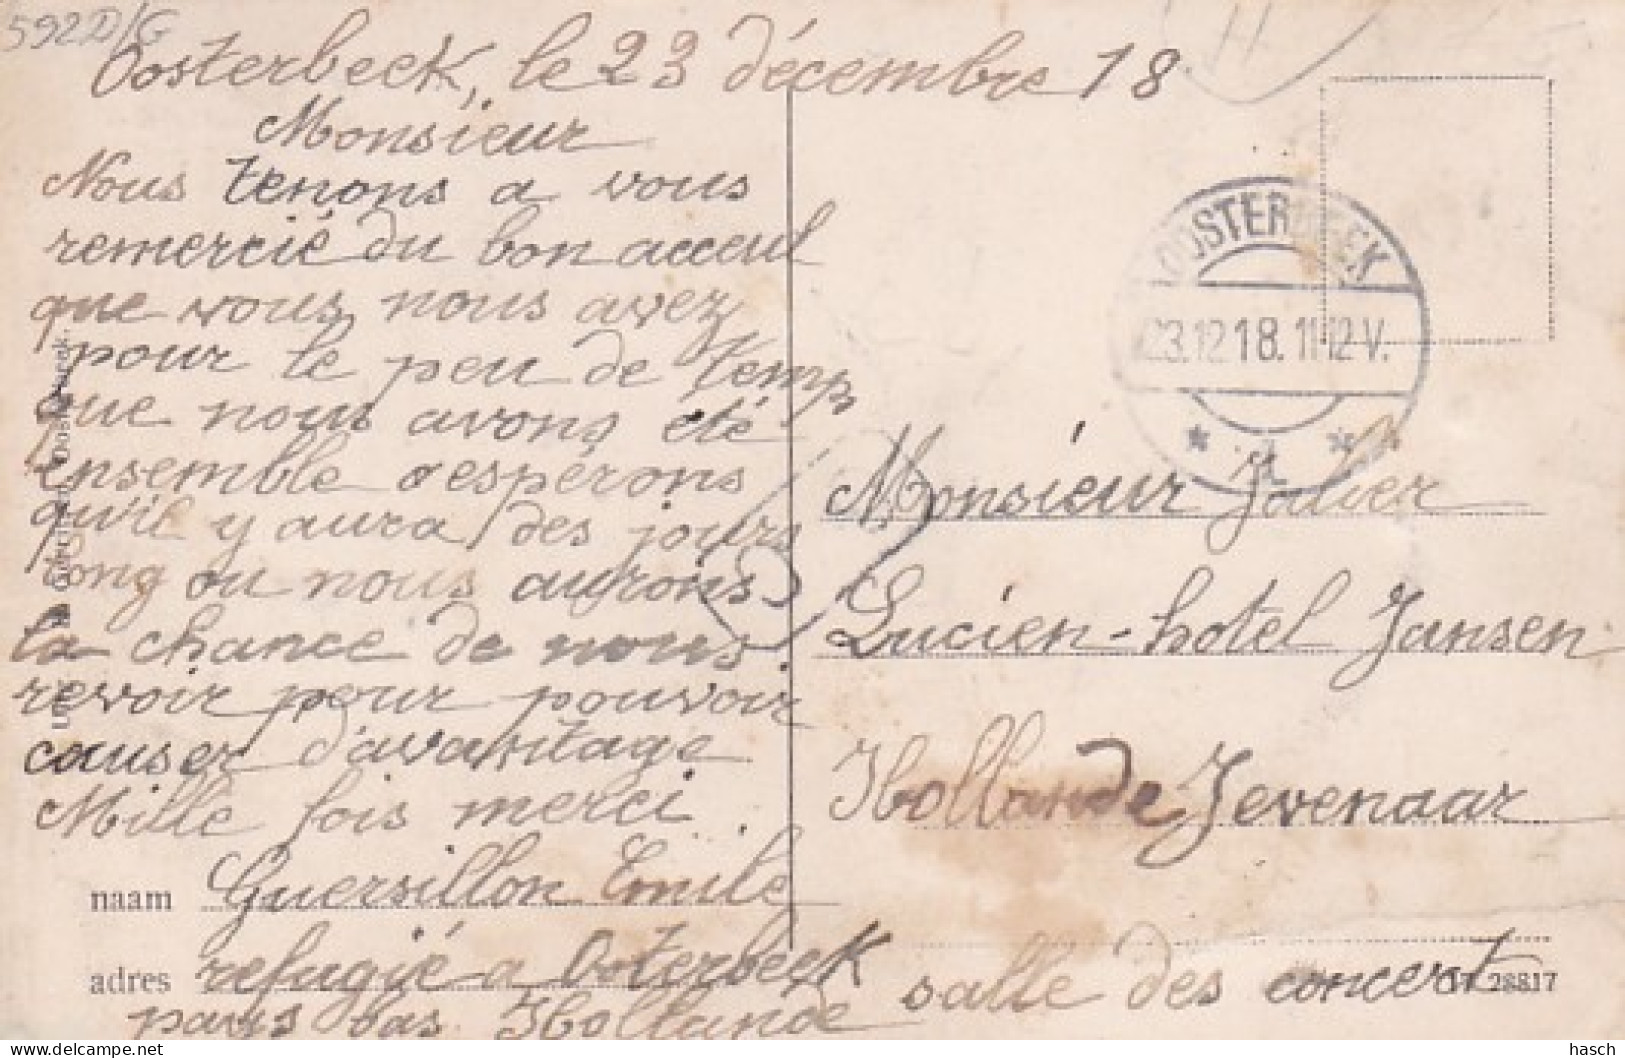 592D/G
Oosterbeek, le 23 décembre 18
Monsieur
Nous tenons a vous
remercié du bon acceul
que vous nous avez
pour le peu de temp
que nous avons été
ensemble espérons
qu'il y aura des jours
long ou nous aurons
la chance de nous
revoir pour pouvoir
causer d'avantage
Mille fois merci
naam Guersillon Emile
adres refugié a Oosterbeek
pays bas Hollande salle des concert
OOSTERBEEK
23.12.18.11-12 V.
Monsieur
Lucien-hotel Jansen
Hollande Jevenaar
28817
hasch